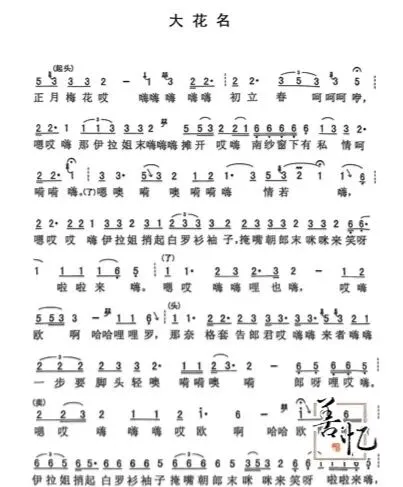 大花名
(起头)
正月梅花哎 嗨嗨嗨嗨嗨 初立春 呵呵呵咿,
嗯哎 嗨那伊拉姐末嗨嗨嗨摊开 哎嗨 南纱窗下有私 情呵
嗬嗬嗨。(了)嗯噢 嗬 噢嗬嗬嗨 情若 嗨,
嗯哎哎 嗨伊拉姐捎起白罗衫袖子,掩嘴朝郎末咪咪来笑呀
(了)
啦啦来 嗨。嗯哎 嗨嗨哩也嗨, 哎嗨
(头)
欧 啊 哈哈哩哩罗,那奈 格套告郎君哎嗨嗨来者嗨嗨
一步要 脚头轻噢 嗬嗬噢 嗬 郎呀哩哎嗨。
嗯哎 嗨 嗨嗨哎欧 啊 哈哈欧
善忆
伊拉姐捎起 白罗衫袖子 掩嘴朝郎末咪咪来笑呀 啦啦来嗨